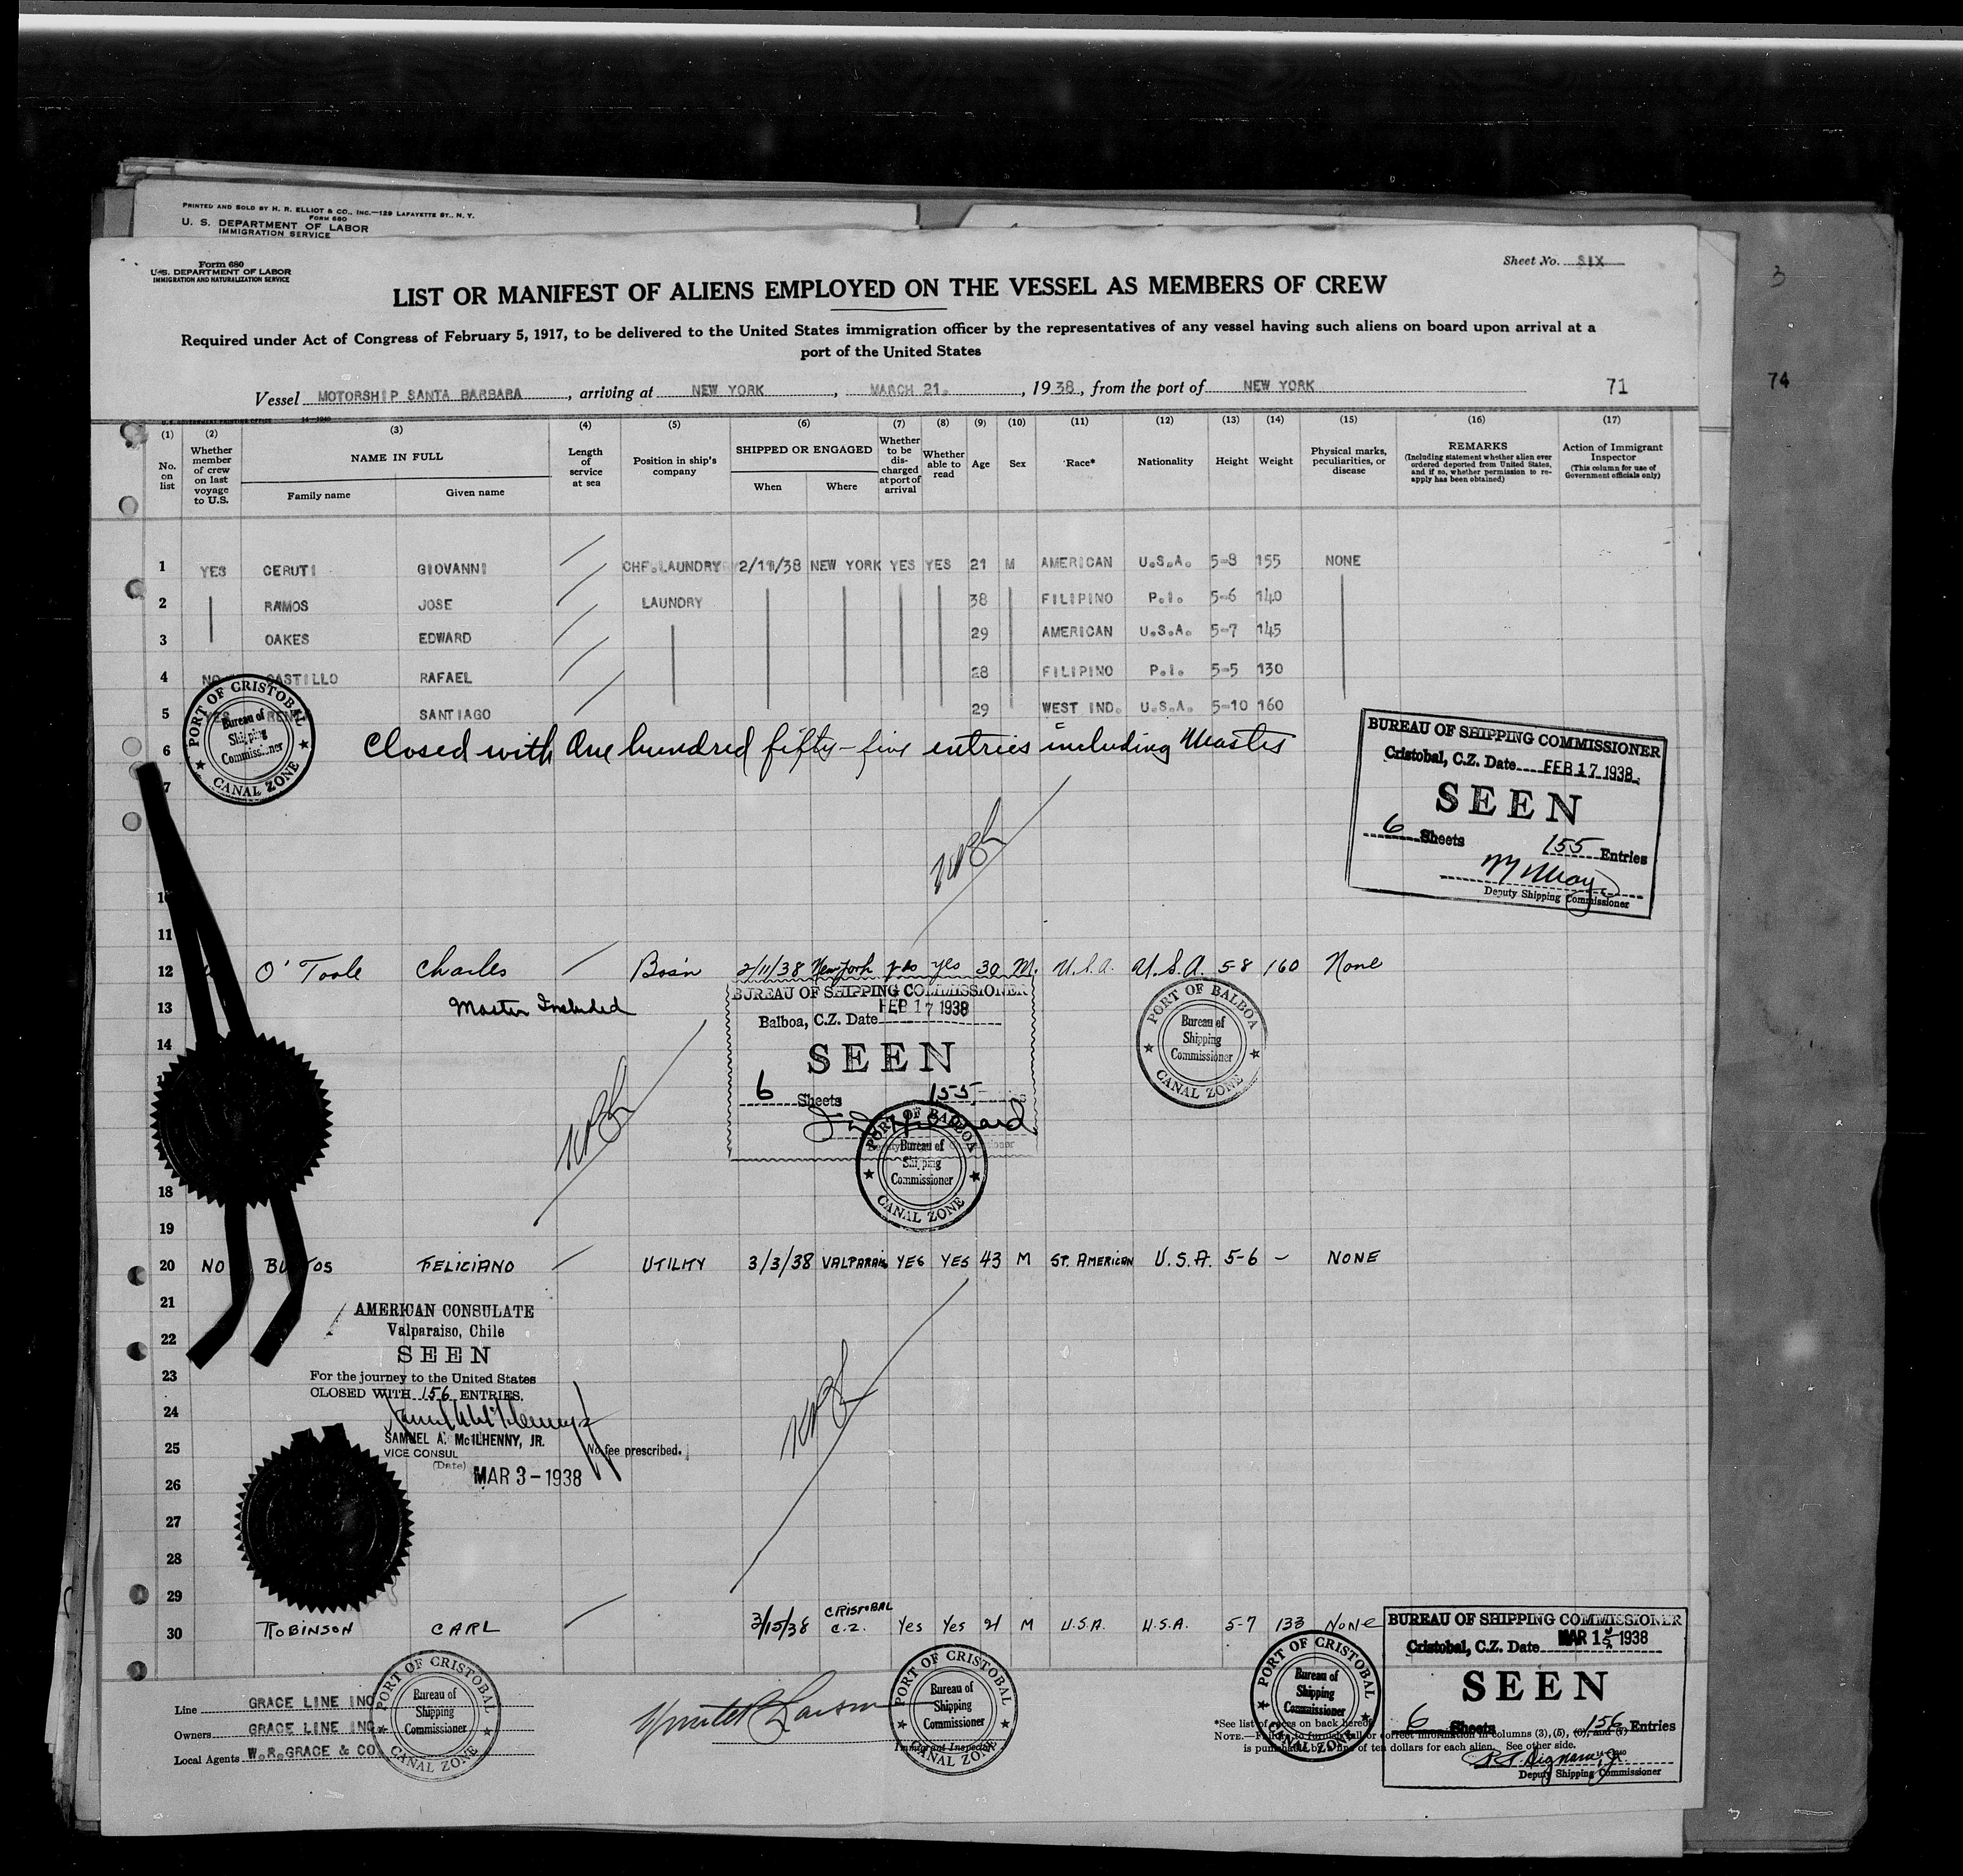 PRINTED AND SOLD BY H. R. ELLIOT & CO., INC.—129 LAFAYETTE ST., N. Y.
FORM 680
U. S. DEPARTMENT OF LABOR
IMMIGRATION SERVICE
Form 680
U. S. DEPARTMENT OF LABOR
IMMIGRATION AND NATURALIZATION SERVICE
Sheet No. SIX
3
LIST OR MANIFEST OF ALIENS EMPLOYED ON THE VESSEL AS MEMBERS OF CREW
Required under Act of Congress of February 5, 1917, to be delivered to the United States immigration officer by the representatives of any vessel having such aliens on board upon arrival at a
port of the United States
Vessel MOTORSHIP SANTA BARBARA, arriving at NEW YORK, MARCH 21., 1938, from the port of NEW YORK 71
74
U. S. GOVERNMENT PRINTING OFFICE 14—1940
(1) (2) (3) (4) (5) (6) (7) (8) (9) (10) (11) (12) (13) (14) (15) (16) (17)
No. on list
Whether member of crew on last voyage to U.S.
NAME IN FULL
Family name Given name
Length of service at sea
Position in ship's company
SHIPPED OR ENGAGED
When Where
Whether to be discharged at port of arrival
Whether able to read
Age
Sex
Race*
Nationality
Height
Weight
Physical marks, peculiarities, or disease
REMARKS
(Including statement whether alien ever ordered deported from United States, and if so, whether permission to reapply has been obtained)
Action of Immigrant Inspector
(This column for use of Government officials only)
1 YES CERUTI GIOVANNI CHF.LAUNDRY 2/11/38 NEW YORK YES YES 21 M AMERICAN U.S.A. 5-8 155 NONE
2 RAMOS JOSE LAUNDRY 38 FILIPINO P.I. 5-6 140
3 OAKES EDWARD 29 AMERICAN U.S.A. 5-7 145
4 NO CASTILLO RAFAEL 28 FILIPINO P.I. 5-5 130
5 SANTIAGO 29 WEST IND. U.S.A. 5-10 160
6 Closed with One hundred fifty-five entries including Master
7
PORT OF CRISTOBAL
Bureau of Shipping Commissioner
CANAL ZONE
BUREAU OF SHIPPING COMMISSIONER
Cristobal, C.Z. Date FEB 17 1938
SEEN
6 Sheets 155 Entries
Deputy Shipping Commissioner
10
11
12 O'Toole Charles Bos'n 2/11/38 New York yes yes 30 M. U.S.A. U.S.A. 5-8 160 None
13 Master Included
BUREAU OF SHIPPING COMMISSIONER
Balboa, C.Z. Date FEB 17 1938
SEEN
6 Sheets 155
PORT OF BALBOA
Bureau of Shipping Commissioner
CANAL ZONE
PORT OF BALBOA
Bureau of Shipping Commissioner
CANAL ZONE
14
18
19
20 NO BUSTOS FELICIANO UTILITY 3/3/38 VALPARAIS YES YES 43 M ST. AMERICAN U.S.A. 5-6 - NONE
21
22
23
24
25
26
27
28
29
AMERICAN CONSULATE
Valparaiso, Chile
SEEN
For the journey to the United States
CLOSED WITH 156 ENTRIES.
SAMUEL A. McILHENNY, JR.
VICE CONSUL No fee prescribed.
(Date) MAR 3 - 1938
30 ROBINSON CARL 3/15/38 CRISTOBAL C.Z. Yes Yes 21 M U.S.A. U.S.A. 5-7 133 NONE
BUREAU OF SHIPPING COMMISSIONER
Cristobal, C.Z. Date MAR 15 1938
SEEN
6 Sheets 156 Entries
Deputy Shipping Commissioner
Line GRACE LINE INC
Owners GRACE LINE INC.
Local Agents W.R.GRACE & CO
PORT OF CRISTOBAL
Bureau of Shipping Commissioner
CANAL ZONE
PORT OF CRISTOBAL
Bureau of Shipping Commissioner
CANAL ZONE
Immigrant Inspector
PORT OF CRISTOBAL
Bureau of Shipping Commissioner
CANAL ZONE
*See list of races on back hereof.
NOTE.—Failure to furnish full or correct information in columns (3), (5), (6), and (7)
is punishable by a fine of ten dollars for each alien. See other side.